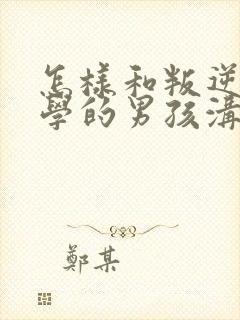 怎樣和叛逆
學的男孩溝
鄭某